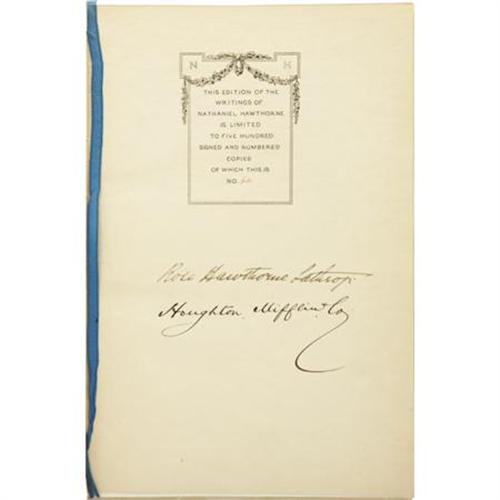 N H
THIS EDITION OF THE
WRITINGS OF
NATHANIEL HAWTHORNE
IS LIMITED
TO FIVE HUNDRED
SIGNED AND NUMBERED
COPIES
OF WHICH THIS IS
NO.
Rose Hawthorne Lathrop.
Houghton, Mifflin & Co.